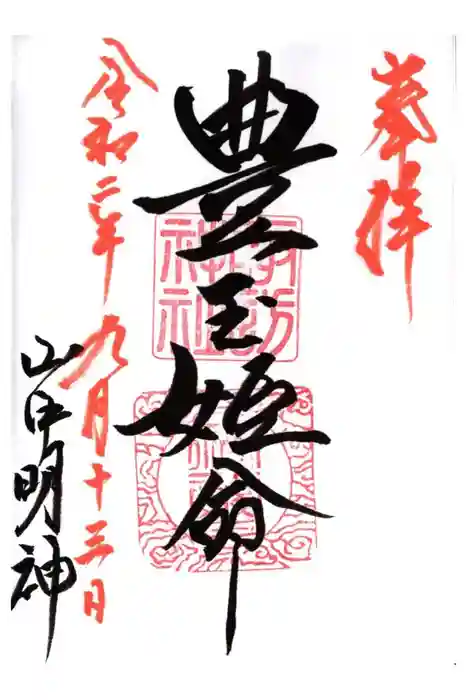 奉拝
豊玉姫命
諏訪
神社
令和二年九月十三日
山中明神